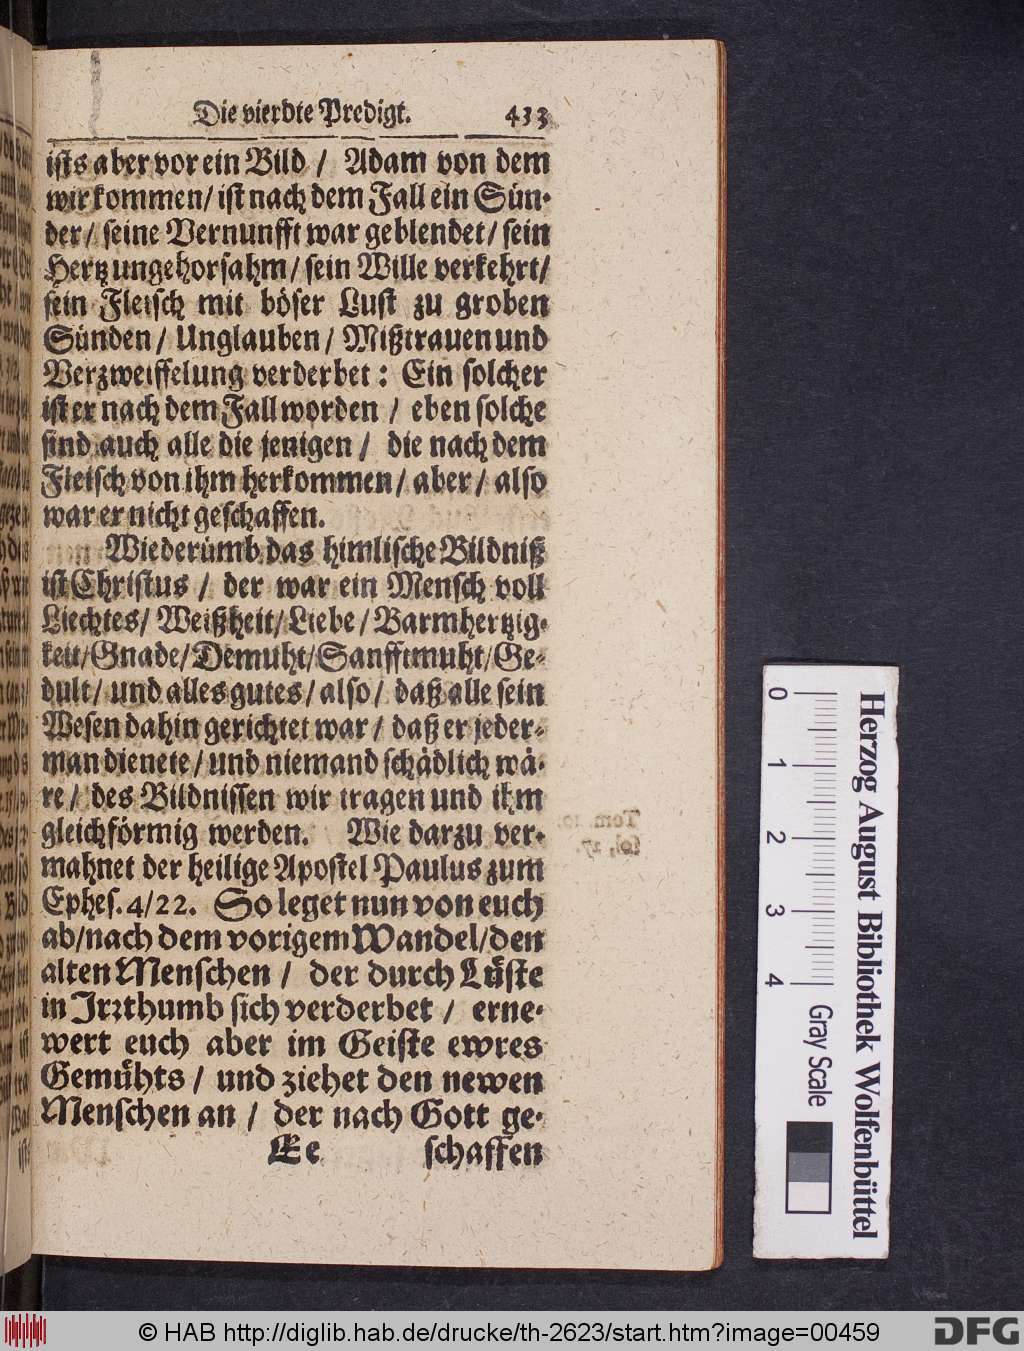 Die vierdte Predigt. 433
ists aber vor ein Bild / Adam von dem
wir kommen / ist nach dem Fall ein Sün-
der / seine Vernunfft war geblendet / sein
Hertz ungehorsahm / sein Wille verkehrt /
sein Fleisch mit böser Lust zu groben
Sünden / Unglauben / Mißtrauen und
Verzweiffelung verderbet : Ein solcher
ist er nach dem Fall worden / eben solche
sind auch alle die jenigen / die nach dem
Fleisch von ihm herkommen / aber / also
war er nicht geschaffen.
Wiederumb das himlische Bildniß
ist Christus / der war ein Mensch voll
Liechtes / Weißheit / Liebe / Barmhertzig-
keit / Gnade / Demuht / Sanfftmuht / Ge-
dult / und alles gutes / also / daß alle sein
Wesen dahin gerichtet war / daß er jeder-
man dienete / und niemand schädlich wä-
re / des Bildnissen wir tragen und ihm
gleichförmig werden. Wie darzu ver-
mahnet der heilige Apostel Paulus zum
Ephes. 4/22. So leget nun von euch
ab / nach dem vorigem Wandel / den
alten Menschen / der durch Lüste
in Irrthumb sich verderbet / erne-
wert euch aber im Geiste ewres
Gemühts / und ziehet den newen
Menschen an / der nach Gott ge-
Ee schaffen
Herzog August Bibliothek Wolfenbüttel
0 1 2 3 4 Gray Scale
© HAB http://diglib.hab.de/drucke/th-2623/start.htm?image=00459
DFG